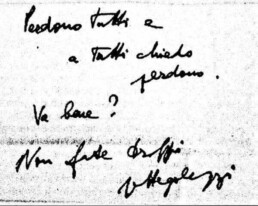 Perdono tutti e
a tutti chiedo
perdono.
Va bene?
Non fate troppi
pettegolezzi